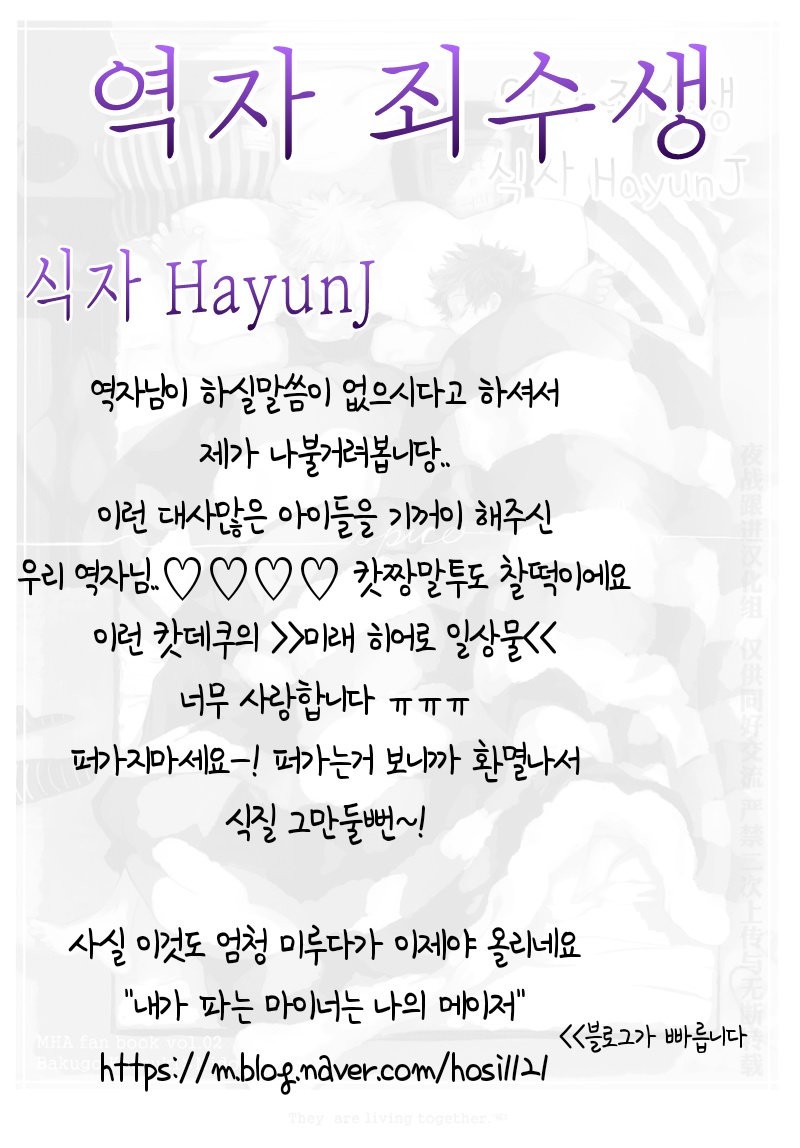 역자 죄수생
역자 죄수생
식자 HayunJ
식자 HayunJ
역자님이 하실말씀이 없으시다고 하셔서
제가 나불거려봅니당..
이런 대사많은 아이들을 기꺼이 해주신
우리 역자님..♡♡♡♡ 캇짱말투도 찰떡이에요
이런 캇데쿠의 >>미래 히어로 일상물<<
너무 사랑합니다 ㅠㅠㅠ
퍼가지마세요-! 퍼가는거 보니까 환멸나서
식질 그만둘뻔~!
사실 이것도 엄청 미루다가 이제야 올리네요
"내가 파는 마이너는 나의 메이저"
<<블로그가 빠릅니다
https://m.blog.naver.com/hosi1121
MHA fan book vol.02
They are living together.
夜战躁进汉化组 仅供同好交流 严禁二次上传与无断转载